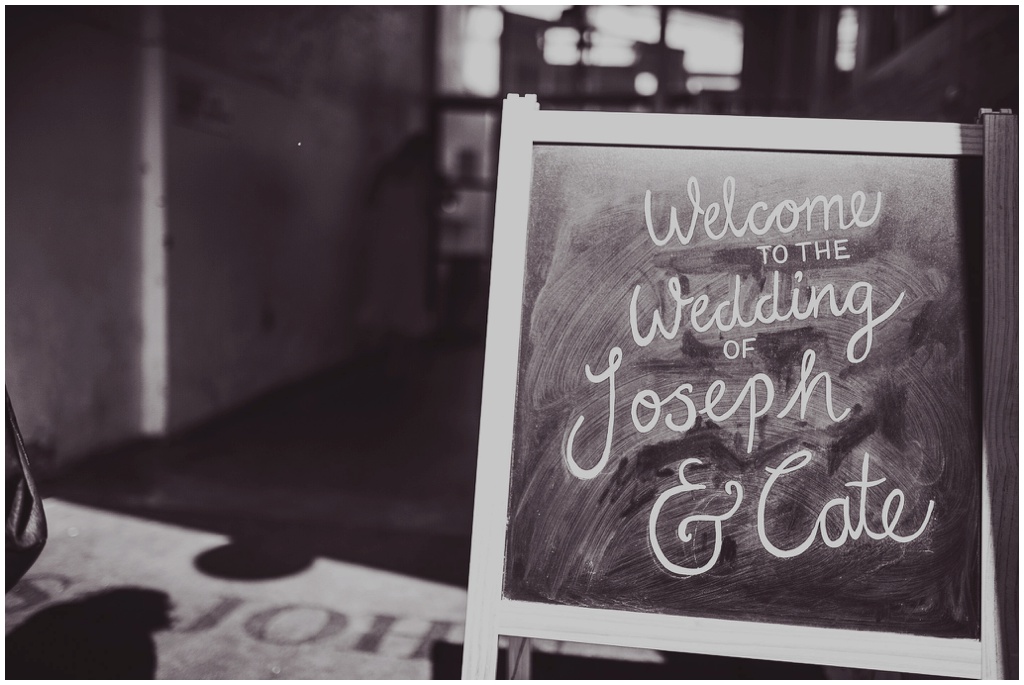 Welcome
TO THE
Wedding
OF
Joseph
& Cate
JOH